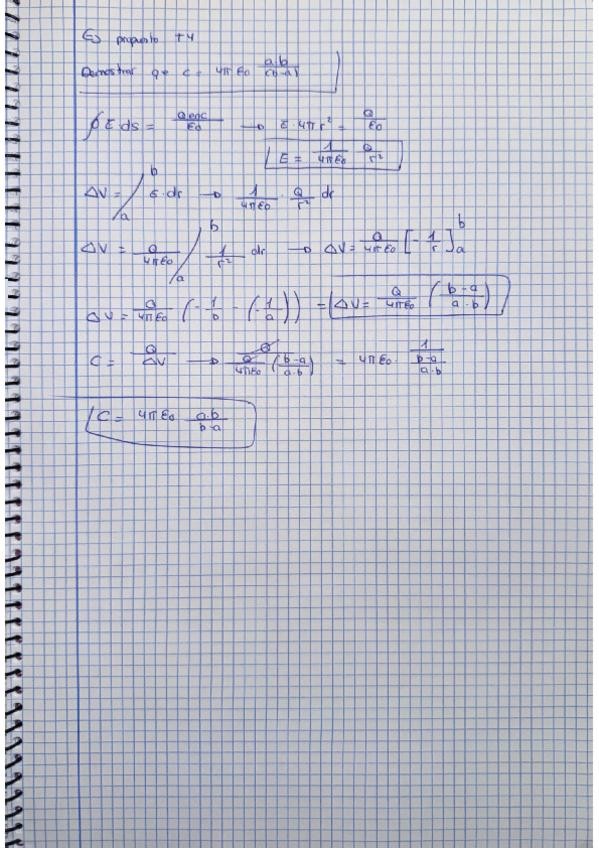 Ej propuesto T4
Demostrar que C = 4πε₀ a·b/(b-a)
∮ E ds = Qenc/ε₀ → E·4πr² = Q/ε₀
E = 1/4πε₀ Q/r²
ΔV = ∫ₐᵇ E·dr → 1/4πε₀ · Q/r² dr
ΔV = Q/4πε₀ ∫ₐᵇ 1/r² dr → ΔV = Q/4πε₀ [-1/r]ₐᵇ
ΔV = Q/4πε₀ (-1/b - (-1/a)) = ΔV = Q/4πε₀ (b-a/a·b)
C = Q/ΔV → Q/(Q/4πε₀ (b-a/a·b)) = 4πε₀ · 1/(b-a/a·b)
C = 4πε₀ a·b/b-a